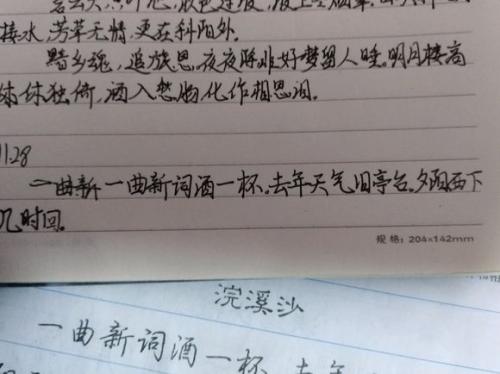 秋色连波,波上
接水,芳草无情,更在斜阳外.
黯乡魂,追旅思,夜夜除非好梦留人睡.明月楼高
休独倚,酒入愁肠化作相思泪.
11.28
一曲新一曲新词酒一杯.去年天气旧亭台.夕阳西下
几时回.
规 格:204×142mm
浣溪沙
一曲新词酒一杯 去年